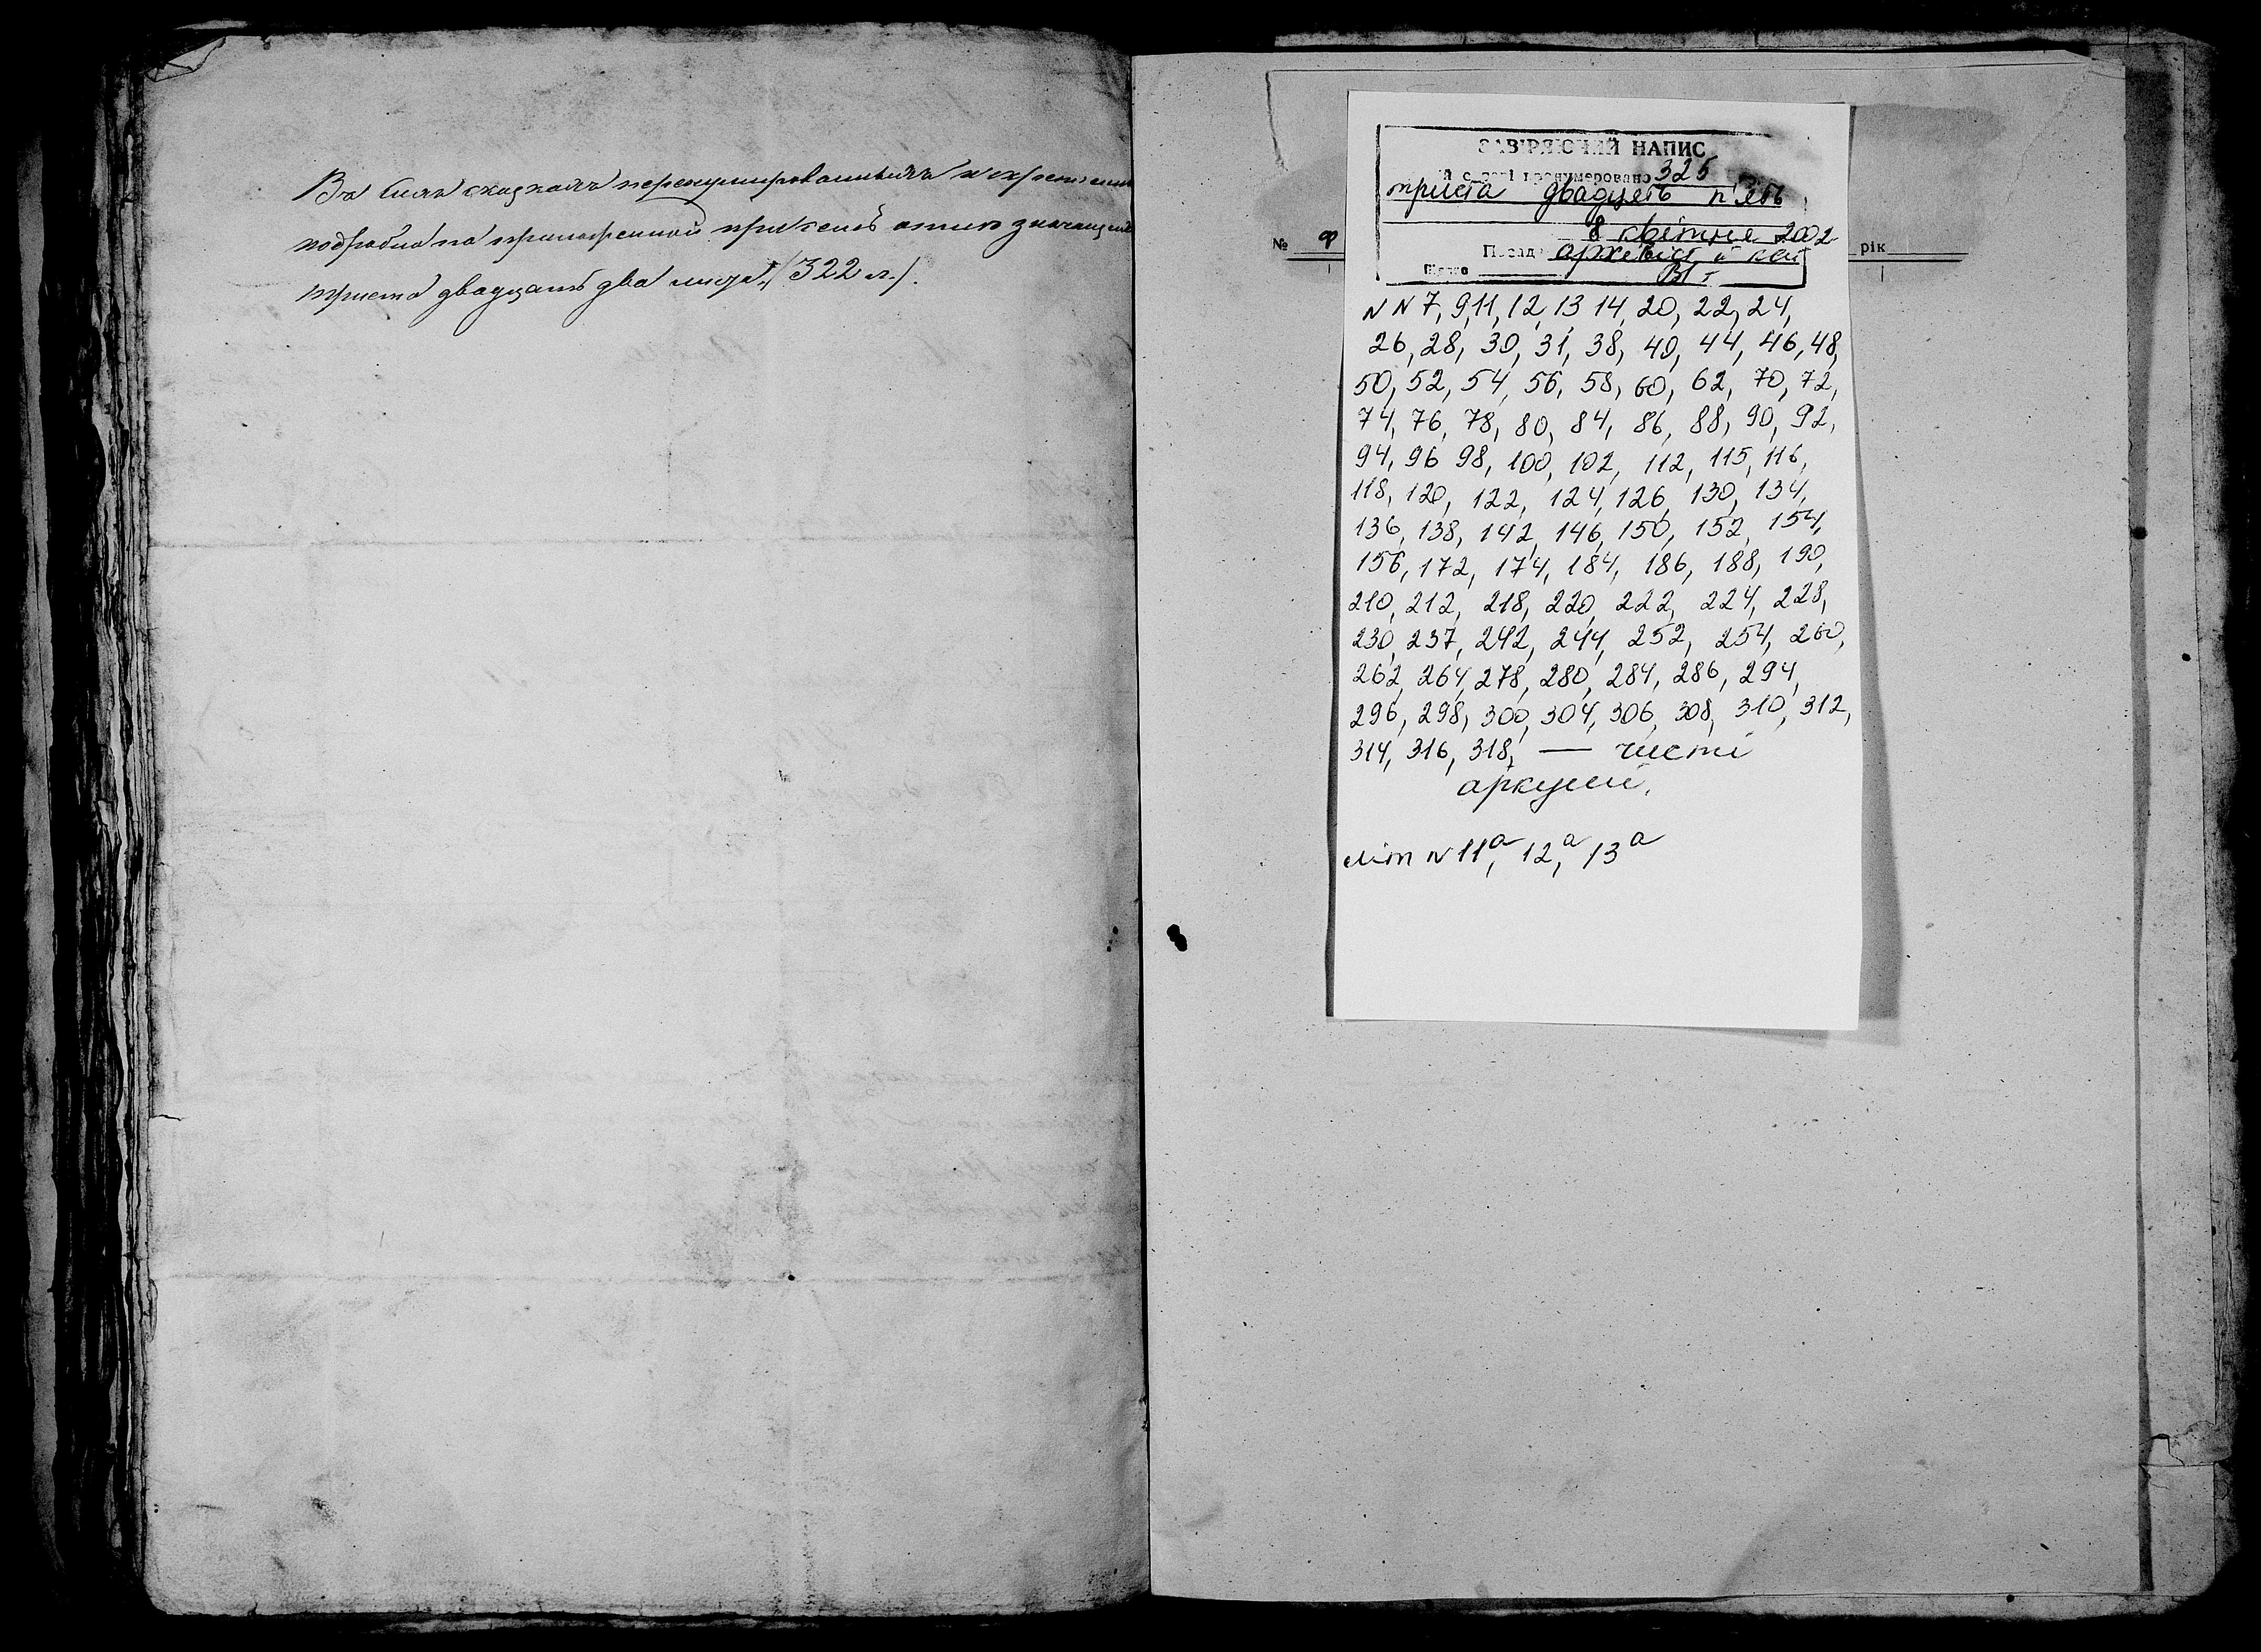 Въ сихъ сказкахъ перенумерованныхъ и
подробно по
триста двадцать два листа (322 л.).
ЗАВІРЯЮЧИЙ НАПИС
й справі пронумеровано 325
триста двадцять п'ять
8 квітня 2002
Посада архівіст
№ ф рік
NN 7, 9, 11, 12, 13 14, 20, 22, 24,
26, 28, 30, 31, 38, 40, 44, 46, 48,
50, 52, 54, 56, 58, 60, 62, 70, 72,
74, 76, 78, 80, 84, 86, 88, 90, 92,
94, 96 98, 100, 102, 112, 115, 116,
118, 120, 122, 124, 126, 130, 134,
136, 138, 142, 146, 150, 152, 154,
156, 172, 174, 184, 186, 188, 190,
210, 212, 218, 220, 222, 224, 228,
230, 237, 242, 244, 252, 254, 260,
262, 264, 278, 280, 284, 286, 294,
296, 298, 300, 304, 306, 308, 310, 312,
314, 316, 318, — чисті
аркуші.
літ N 11а, 12а, 13а